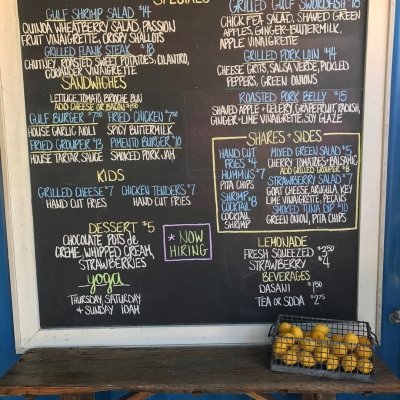 SPECIALS
GULF SHRIMP SALAD $14
QUINOA WHEATBERRY SALAD, PASSION
FRUIT VINAIGRETTE, CRISPY SHALLOTS
GRILLED FLANK STEAK $18
CHUTNEY, ROASTED SWEET POTATOES, CILANTRO,
CORIANDER VINAIGRETTE
SANDWICHES
LETTUCE, TOMATO, BRIOCHE BUN
ADD CHEESE OR BACON $1.50
GULF BURGER $7.50
HOUSE GARLIC AIOLI
FRIED CHICKEN $7.00
SPICY BUTTERMILK
FRIED GROUPER $13
HOUSE TARTAR SAUCE
PIMENTO BURGER $10
SMOKED PORK JAM
KIDS
GRILLED CHEESE $7
HAND CUT FRIES
CHICKEN TENDERS $7
HAND CUT FRIES
DESSERT $5
CHOCOLATE POTS de
CREME, WHIPPED CREAM,
STRAWBERRIES
yoga
THURSDAY, SATURDAY
& SUNDAY 10AM
* NOW
HIRING
GRILLED GULF SWORDFISH $18
CHICK PEA SALAD, SHAVED GREEN
APPLES, GINGER-BUTTERMILK,
APPLE VINAIGRETTE
GRILLED PORK LOIN $14
CHEESE GRITS, SALSA VERDE, PICKLED
PEPPERS, GREEN ONIONS
ROASTED PORK BELLY $15
SHAVED APPLE + CELERY, GRAPEFRUIT, RADISH,
GINGER-LIME VINAIGRETTE, SOY GLAZE
SHARES + SIDES
HAND CUT
FRIES $4
HUMMUS $7
PITA CHIPS
SHRIMP
COCKTAIL $8
COCKTAIL
SHRIMP
MIXED GREEN SALAD $5
CHERRY TOMATOES + BALSAMIC
ADD GRILLED GROUPER $8
STRAWBERRY SALAD $7
GOAT CHEESE, ARUGULA, KEY
LIME VINAIGRETTE, PECANS
SMOKED TUNA DIP $10
GREEN ONION, PITA CHIPS
LEMONADE
FRESH SQUEEZED $3.50
STRAWBERRY $4
BEVERAGES
DASANI $1.50
TEA OR SODA $2.75